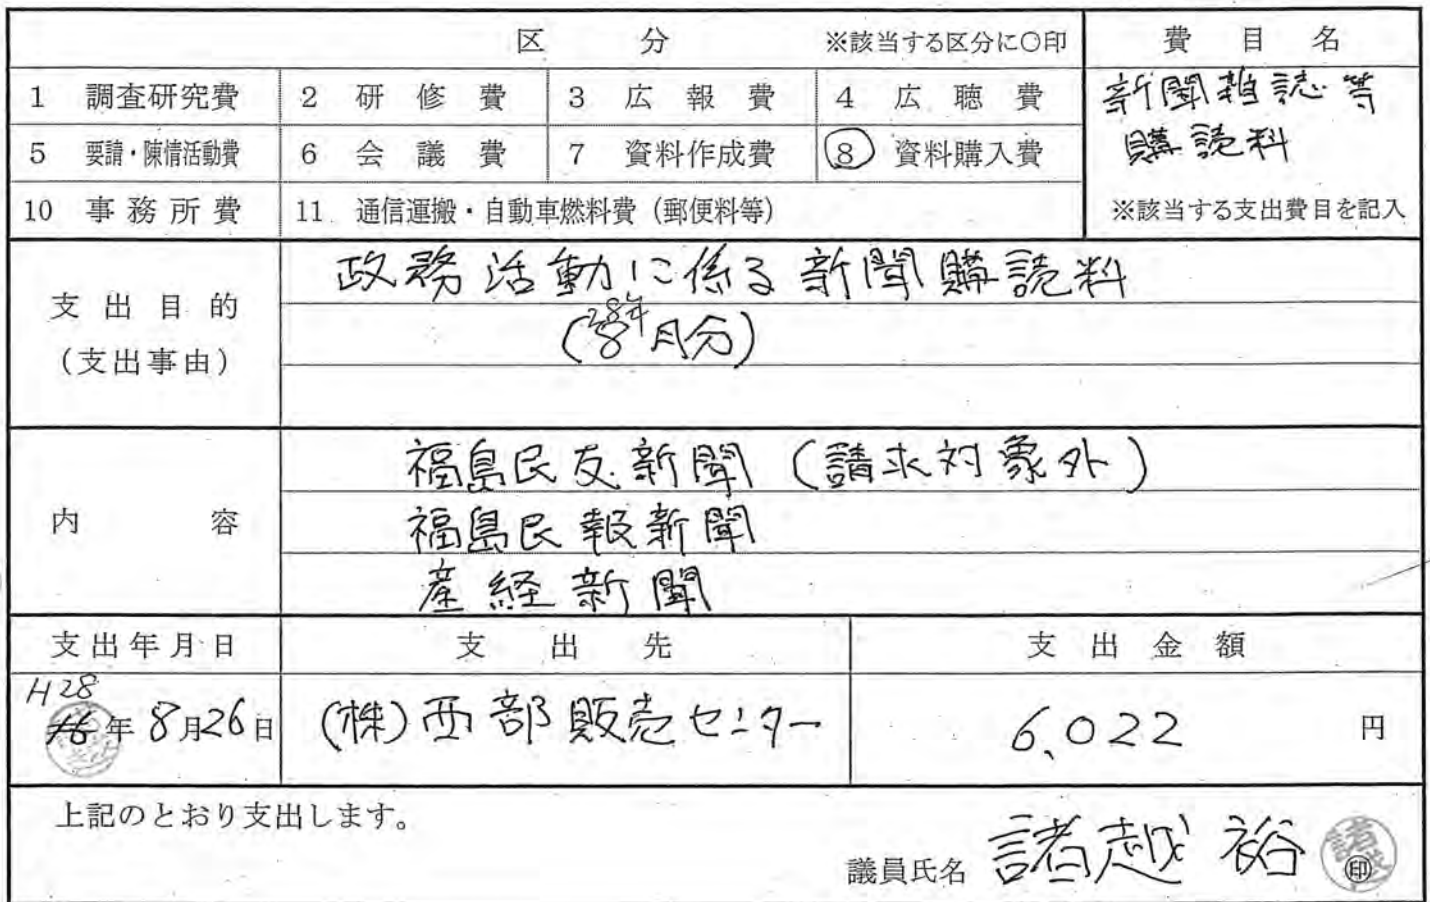 区 分 ※該当する区分に○印 費 目 名
1 調査研究費 2 研 修 費 3 広 報 費 4 広 聴 費 新聞雑誌等
5 要請・陳情活動費 6 会 議 費 7 資料作成費 8 資料購入費 購読料
10 事務所費 11 通信運搬・自動車燃料費(郵便料等) ※該当する支出費目を記入
支 出 目 的 政務活動に係る新聞購読料
(支出事由) (28年8月分)
福島民友新聞(請求対象外)
内 容 福島民報新聞
産経新聞
支出年月日 支 出 先 支 出 金 額
H28
年8月26日 (株)西部販売センター 6,022 円
上記のとおり支出します。
議員氏名 諸越 裕 印